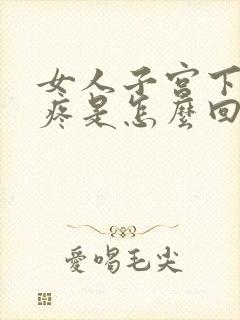 女人子宫下
疼是怎麽回
愛唱毛尖